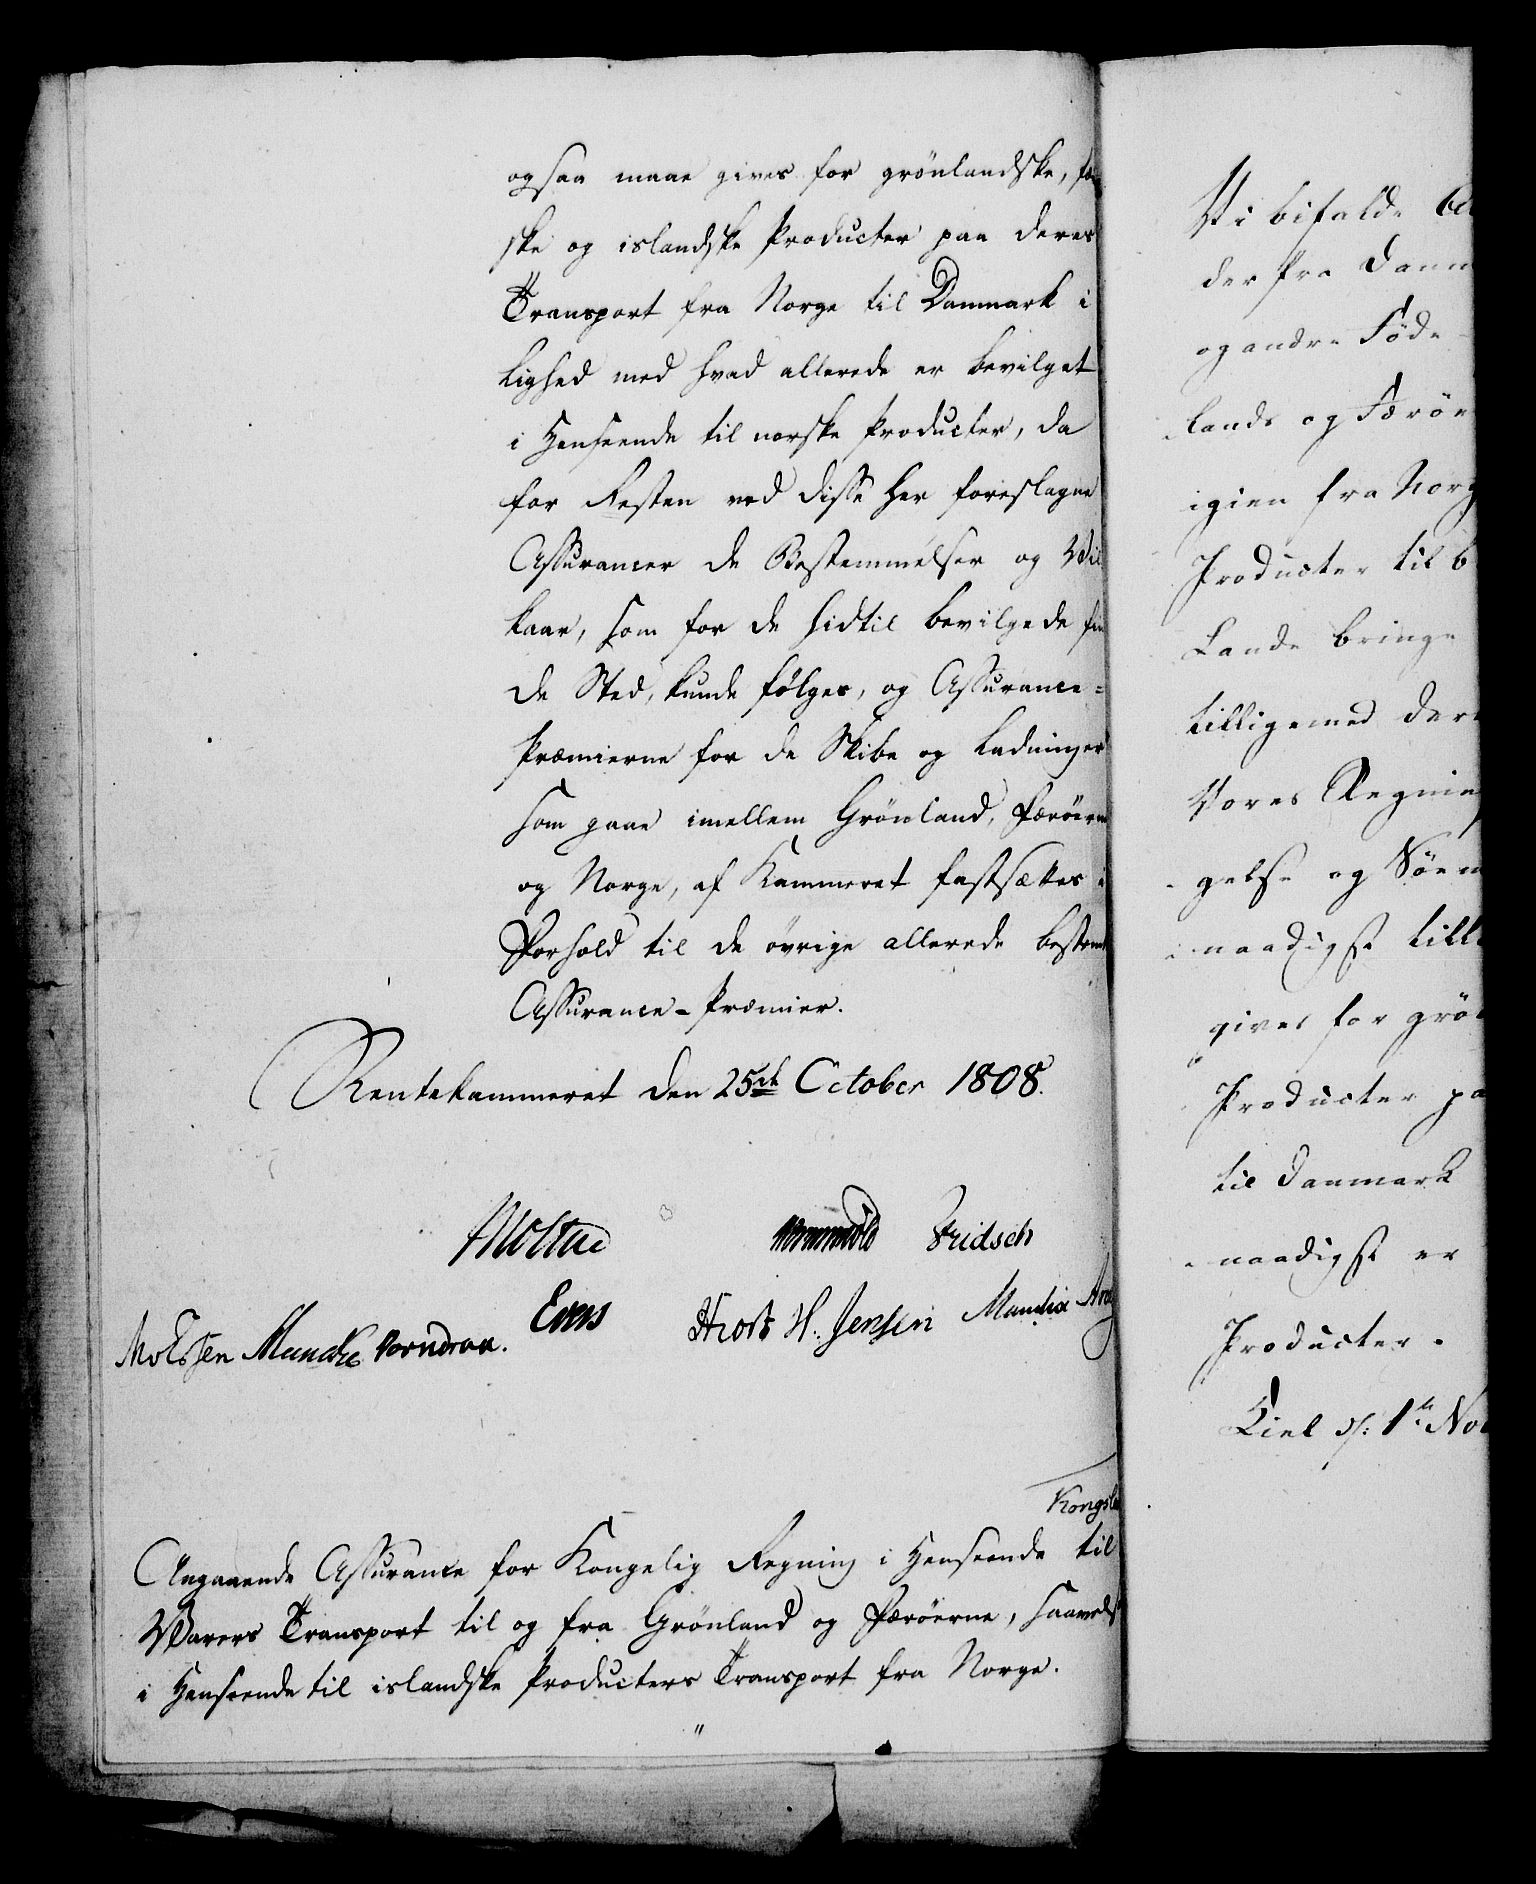 ogsaa maae gives for grönlandske, fær
ske og islandske Producter paa deres
Transport fra Norge til Danmark i
Lighed med hvad allerede er bevilget
i Henseende til norske Producter, da
for Resten ved disse her foreslagne
Assurancer de Bestemmelser og Vil
kaar, som for de hidtil bevilgede fin
de Sted, kunde fölges, og Assurance=
Præmierne for de Skibe og Ladninger
som gaae imellem Grönland, Færöerne
og Norge, af Kammeret fastsættes i
Forhold til de övrige allerede bestemte
Assurance-Præmier.
Rentekammeret den 25de October 1808.
Moltke Wormskiold Fridsch
Evers Hiort H. Jensen Mandix
Monssen Muncke Vorndran.
Kongsl
Angaaende Assurance for Kongelig Regning i Henseende til
Varers Transport til og fra Grönland og Færöerne, saavelso
i Henseende til islandske Producters Transport fra Norge.
Vi bifalde
der fra Danm
og andre Föde
lands og Færöe
igien fra Norg
Producter til b
Lande bringe
tilligemed der
Vores Regning
gelse og Söem
naadigst till
gives for grön
Producter pa
til Danmark
naadigst er
Producter.
Kiel d: 1te Nov